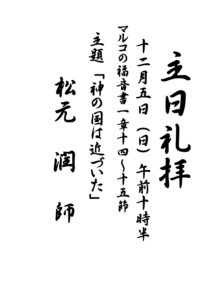 主日礼拝
十二月五日（日）午前十時半
マルコの福音書一章十四～十五節
主題「神の国は近づいた」
松元 潤 師